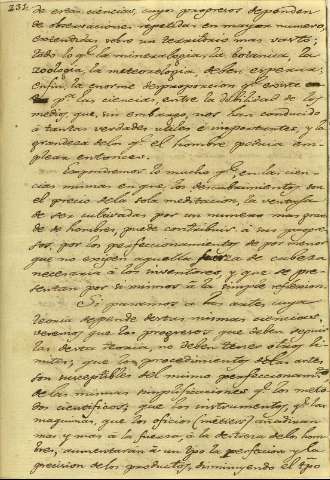 232
de estas ciencias, cuyo progreso depende
de observaciones repetidas en mayor numero,
extendidas sobre un territorio mas vasto;
todo lo qe. la mineralogia, la botanica, la
zoologia, la meteorologia, deben esperar;
en fin, la enorme desproporcion qe. existe
pa. qe. las ciencias, entre la debilidad de los
medios, que, sin embargo, nos han conducido
á tantas verdades utiles é importantes, y la
grandeza de los qe. el hombre podria em-
plear entonces.
Expondremos lo mucho qe., en las cien-
cias mismas en que los descubrimientos son
el precio de la sola meditacion, la ventaja
de ser cultivadas por un numero mas gran
de de hombres, puede contribuir á sus progre-
sos, por los perfeccionamientos de por menor
que no exigen aquella fuerza de cabeza
necesaria á los inventores, y que se pre-
sentan por si mismos á la simple reflexion.
Si pasamos a las artes, cuya
teoria depende de estas mismas ciencias,
veremos que los progresos que deben seguir
los de esta teoria, no deben tener otros li-
mites; que los procedimientos de las artes,
son susceptibles del mismo perfeccionamto.
de las mismas simplificaciones qe. los meto
dos cientificos; que los instrumentos, qe. las
maquinas, que los oficios (métiers) añadiran
mas y mas á la fuerza, á la destreza de los hom
bres, aumentaran á un tpo. la perfeccion y la
precision de los productos, disminuyendo el tpo.